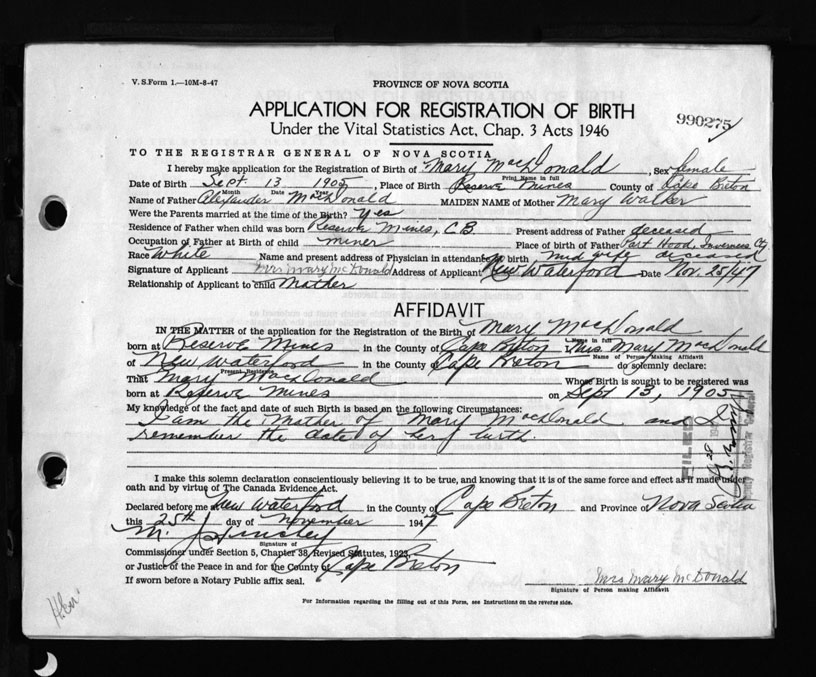 V. S. Form 1.—10M-8-47
PROVINCE OF NOVA SCOTIA
APPLICATION FOR REGISTRATION OF BIRTH
990275
Under the Vital Statistics Act, Chap. 3 Acts 1946
TO THE REGISTRAR GENERAL OF NOVA SCOTIA
I hereby make application for the Registration of Birth of Mary MacDonald, Sex female
Print Name in full
Date of Birth Sept. 13 1905, Place of Birth Reserve Mines County of Cape Breton
Month Date Year
Name of Father Alexander MacDonald MAIDEN NAME of Mother Mary Walker
Were the Parents married at the time of the Birth? Yes
Residence of Father when child was born Reserve Mines, C.B. Present address of Father deceased
Occupation of Father at Birth of child miner Place of birth of Father Port Hood, Inverness Cty
Race White Name and present address of Physician in attendance at birth mid wife deceased
Signature of Applicant Mrs Mary McDonald Address of Applicant New Waterford Date Nov. 25/47
Relationship of Applicant to child Mother
AFFIDAVIT
IN THE MATTER of the application for the Registration of the Birth of Mary MacDonald
Name in full
born at Reserve Mines in the County of Cape Breton Mrs. Mary MacDonald
Name of Person Making Affidavit
of New Waterford in the County of Cape Breton do solemnly declare:
Present Residence
That Mary MacDonald Whose Birth is sought to be registered was
born at Reserve Mines on Sept 13, 1905
My knowledge of the fact and date of such Birth is based on the following Circumstances:
I am the Mother of Mary MacDonald and I
remember the date of her birth.
FILED
28
I make this solemn declaration conscientiously believing it to be true, and knowing that it is of the same force and effect as if made under
oath and by virtue of The Canada Evidence Act.
Declared before me New Waterford in the County of Cape Breton and Province of Nova Scotia
this 25th day of November 1947
M. J. Hinchey
Signature of
Commissioner under Section 5, Chapter 38, Revised Statutes, 1923,
or Justice of the Peace in and for the County of Cape Breton
If sworn before a Notary Public affix seal.
Mrs Mary McDonald
Signature of Person making Affidavit
For Information regarding the filling out of this Form, see Instructions on the reverse side.